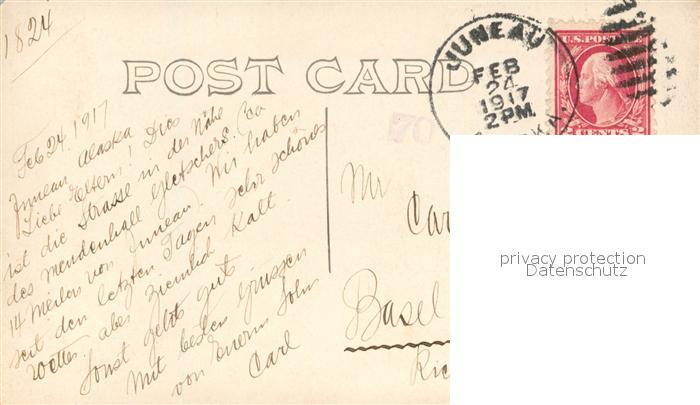 1824
POST CARD
JUNEAU
FEB
24
1917
2 PM
U.S. POSTAGE
70
Feb 24. 1917
Juneau, Alaska
Liebe Eltern! Dies
ist die Strasse in der Nähe
des Mendenhall Gletschers. (ca
14 Meilen von Juneau). Wir haben
seit den letzten Tagen sehr schönes
Wetter aber ziemlich Kalt.
Sonst gehts gut
Mit besten Grüssen
von Euerm Sohn
Carl
Mr
Car
Basel
Ric
privacy protection
Datenschutz